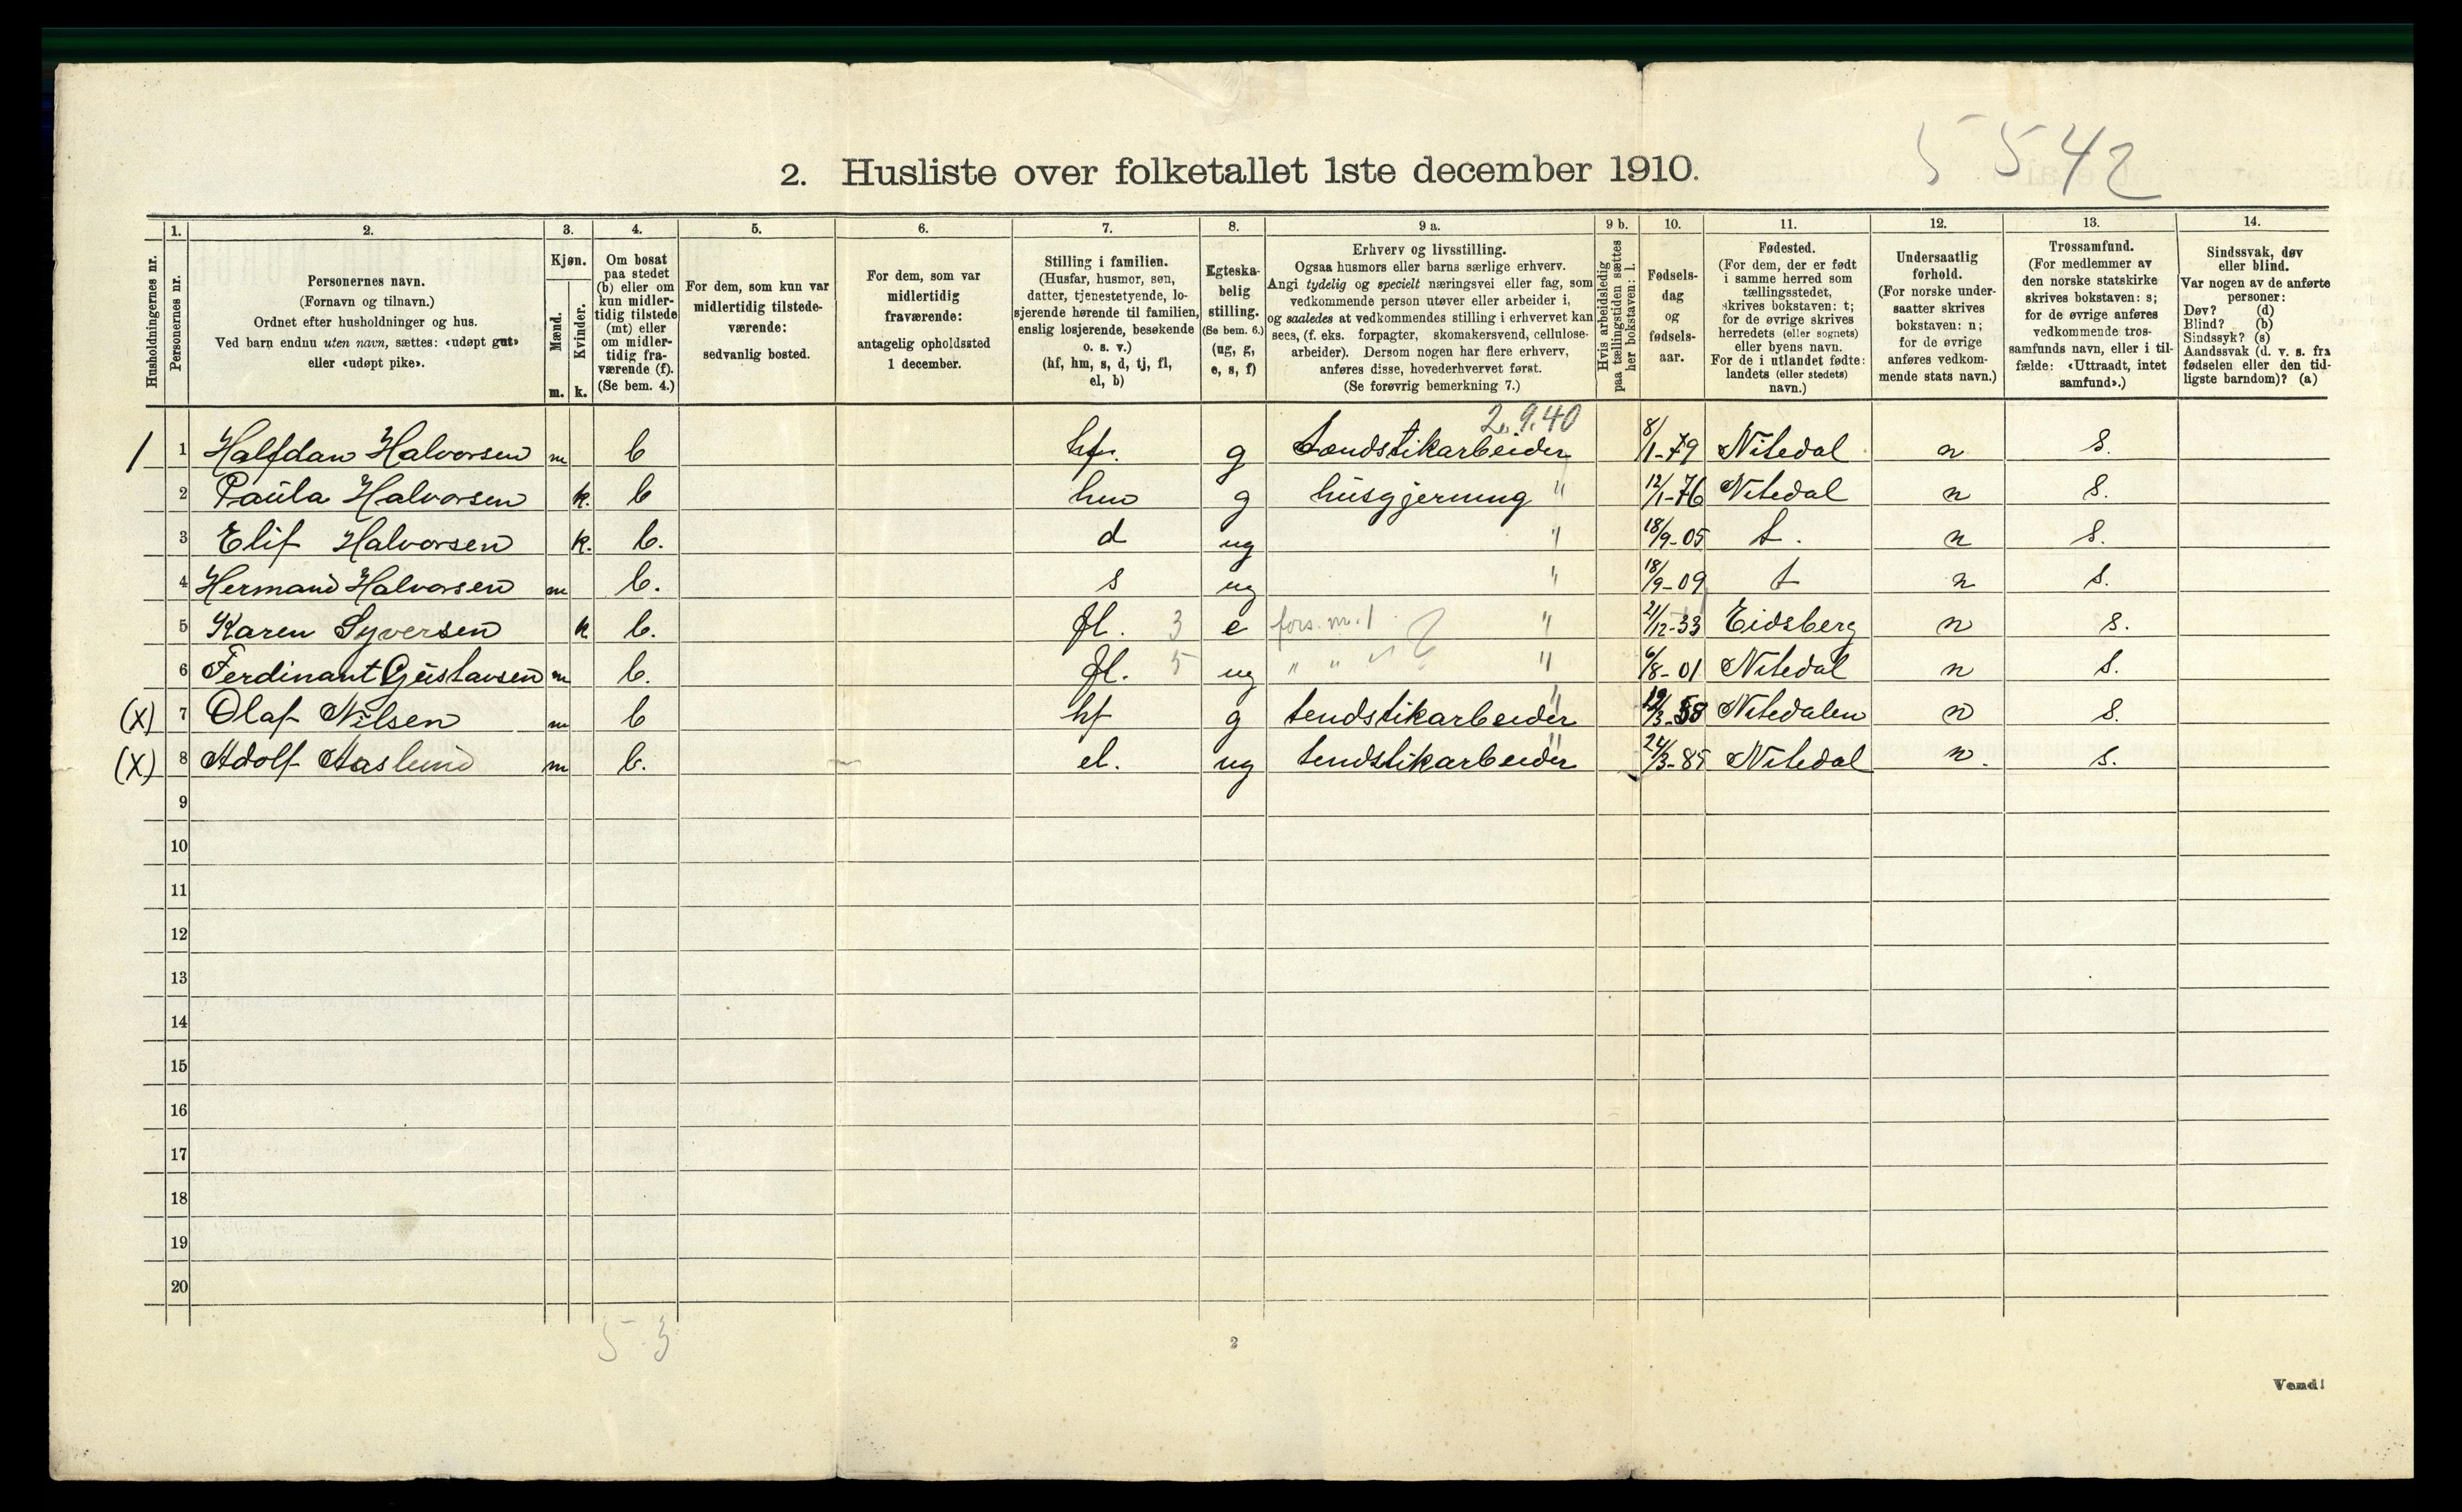 5 542
2. Husliste over folketallet 1ste december 1910.
Husholdningernes nr.
1. Personernes nr.
2. Personernes navn.
(Fornavn og tilnavn.)
Ordnet efter husholdninger og hus.
Ved barn endnu uten navn, sættes: «udøpt gut»
eller «udøpt pike».
3. Kjøn.
Mænd. Kvinder.
m. k.
4. Om bosat
paa stedet
(b) eller om
kun midler-
tidig tilstede
(mt) eller
om midler-
tidig fra-
værende (f).
(Se bem. 4.)
5. For dem, som kun var
midlertidig tilstede-
værende:
sedvanlig bosted.
6. For dem, som var
midlertidig
fraværende:
antagelig opholdssted
1 december.
7. Stilling i familien.
(Husfar, husmor, søn,
datter, tjenestetyende, lo-
sjerende hørende til familien,
enslig losjerende, besøkende
o. s. v.)
(hf, hm, s, d, tj, fl,
el, b)
8. Egteska-
belig
stilling.
(Se bem. 6.)
(ug, g,
e, s, f)
9 a. Erhverv og livsstilling.
Ogsaa husmors eller barns særlige erhverv.
Angi tydelig og specielt næringsvei eller fag, som
vedkommende person utøver eller arbeider i,
og saaledes at vedkommendes stilling i erhvervet kan
sees, (f. eks. forpagter, skomakersvend, cellulose-
arbeider). Dersom nogen har flere erhverv,
anføres disse, hovederhvervet først.
(Se forøvrig bemerkning 7.)
9 b. Hvis arbeidsledig
paa tællingstiden sættes
her bokstaven: l.
10. Fødsels-
dag
og
fødsels-
aar.
11. Fødested.
(For dem, der er født
i samme herred som
tællingsstedet,
skrives bokstaven: t;
for de øvrige skrives
herredets (eller sognets)
eller byens navn.
For de i utlandet fødte:
landets (eller stedets)
navn.)
12. Undersaatlig
forhold.
(For norske under-
saatter skrives
bokstaven: n;
for de øvrige
anføres vedkom-
mende stats navn.)
13. Trossamfund.
(For medlemmer av
den norske statskirke
skrives bokstaven: s;
for de øvrige anføres
vedkommende tros-
samfunds navn, eller i til-
fælde: «Uttraadt, intet
samfund».)
14. Sindssvak, døv
eller blind.
Var nogen av de anførte
personer:
Døv? (d)
Blind? (b)
Sindssyk? (s)
Aandssvak (d. v. s. fra
fødselen eller den tid-
ligste barndom)? (a)
2.9.40
/ 1 Halfdan Halvorsen m b hf. g tændstikarbeider 8/1-79 Nitedal n s.
2 Paula Halvorsen k. b hm g husgjerning " 12/1-76 Nitedal n s.
3 Elif Halvorsen k. b. d ug " 18/9-05 t. n s.
4 Hermand Halvorsen m b. s ug " 18/9-09 t n s.
5 Karen Syversen k b. fl. 3 e fors. nr. 1 " 21/12-33 Eidsberg n s.
6 Ferdinant Gustavsen m b. fl. 5 ug " " " " 6/8-01 Nitedal n s.
(x) 7 Olaf Nilsen m b hf g tendstikarbeider " 19/3-58 Nitedalen n s.
(x) 8 Adolf Aaslund m b. el. ug tendstikarbeider " 24/3-85 Nitedal n. s.
9
10
11
12
13
14
15
16
17
18
19
20
5 3
2
Vend!